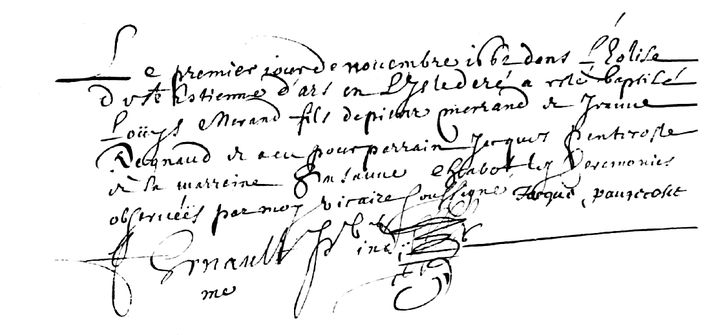 Le premier jour de novembre 1662 dans L'Eglise
de st Estienne d'ars en L'Isle de ré a esté baptisé
Loüys Merand fils de pierre merrand & Jeanne
Regnaud & a eu pour parrain Jacques Pentecoste
& la marreine Susanne Chabot les Ceremonies
observéés par moy vicaire soussigné Jacque pantecoste
Ernault
me